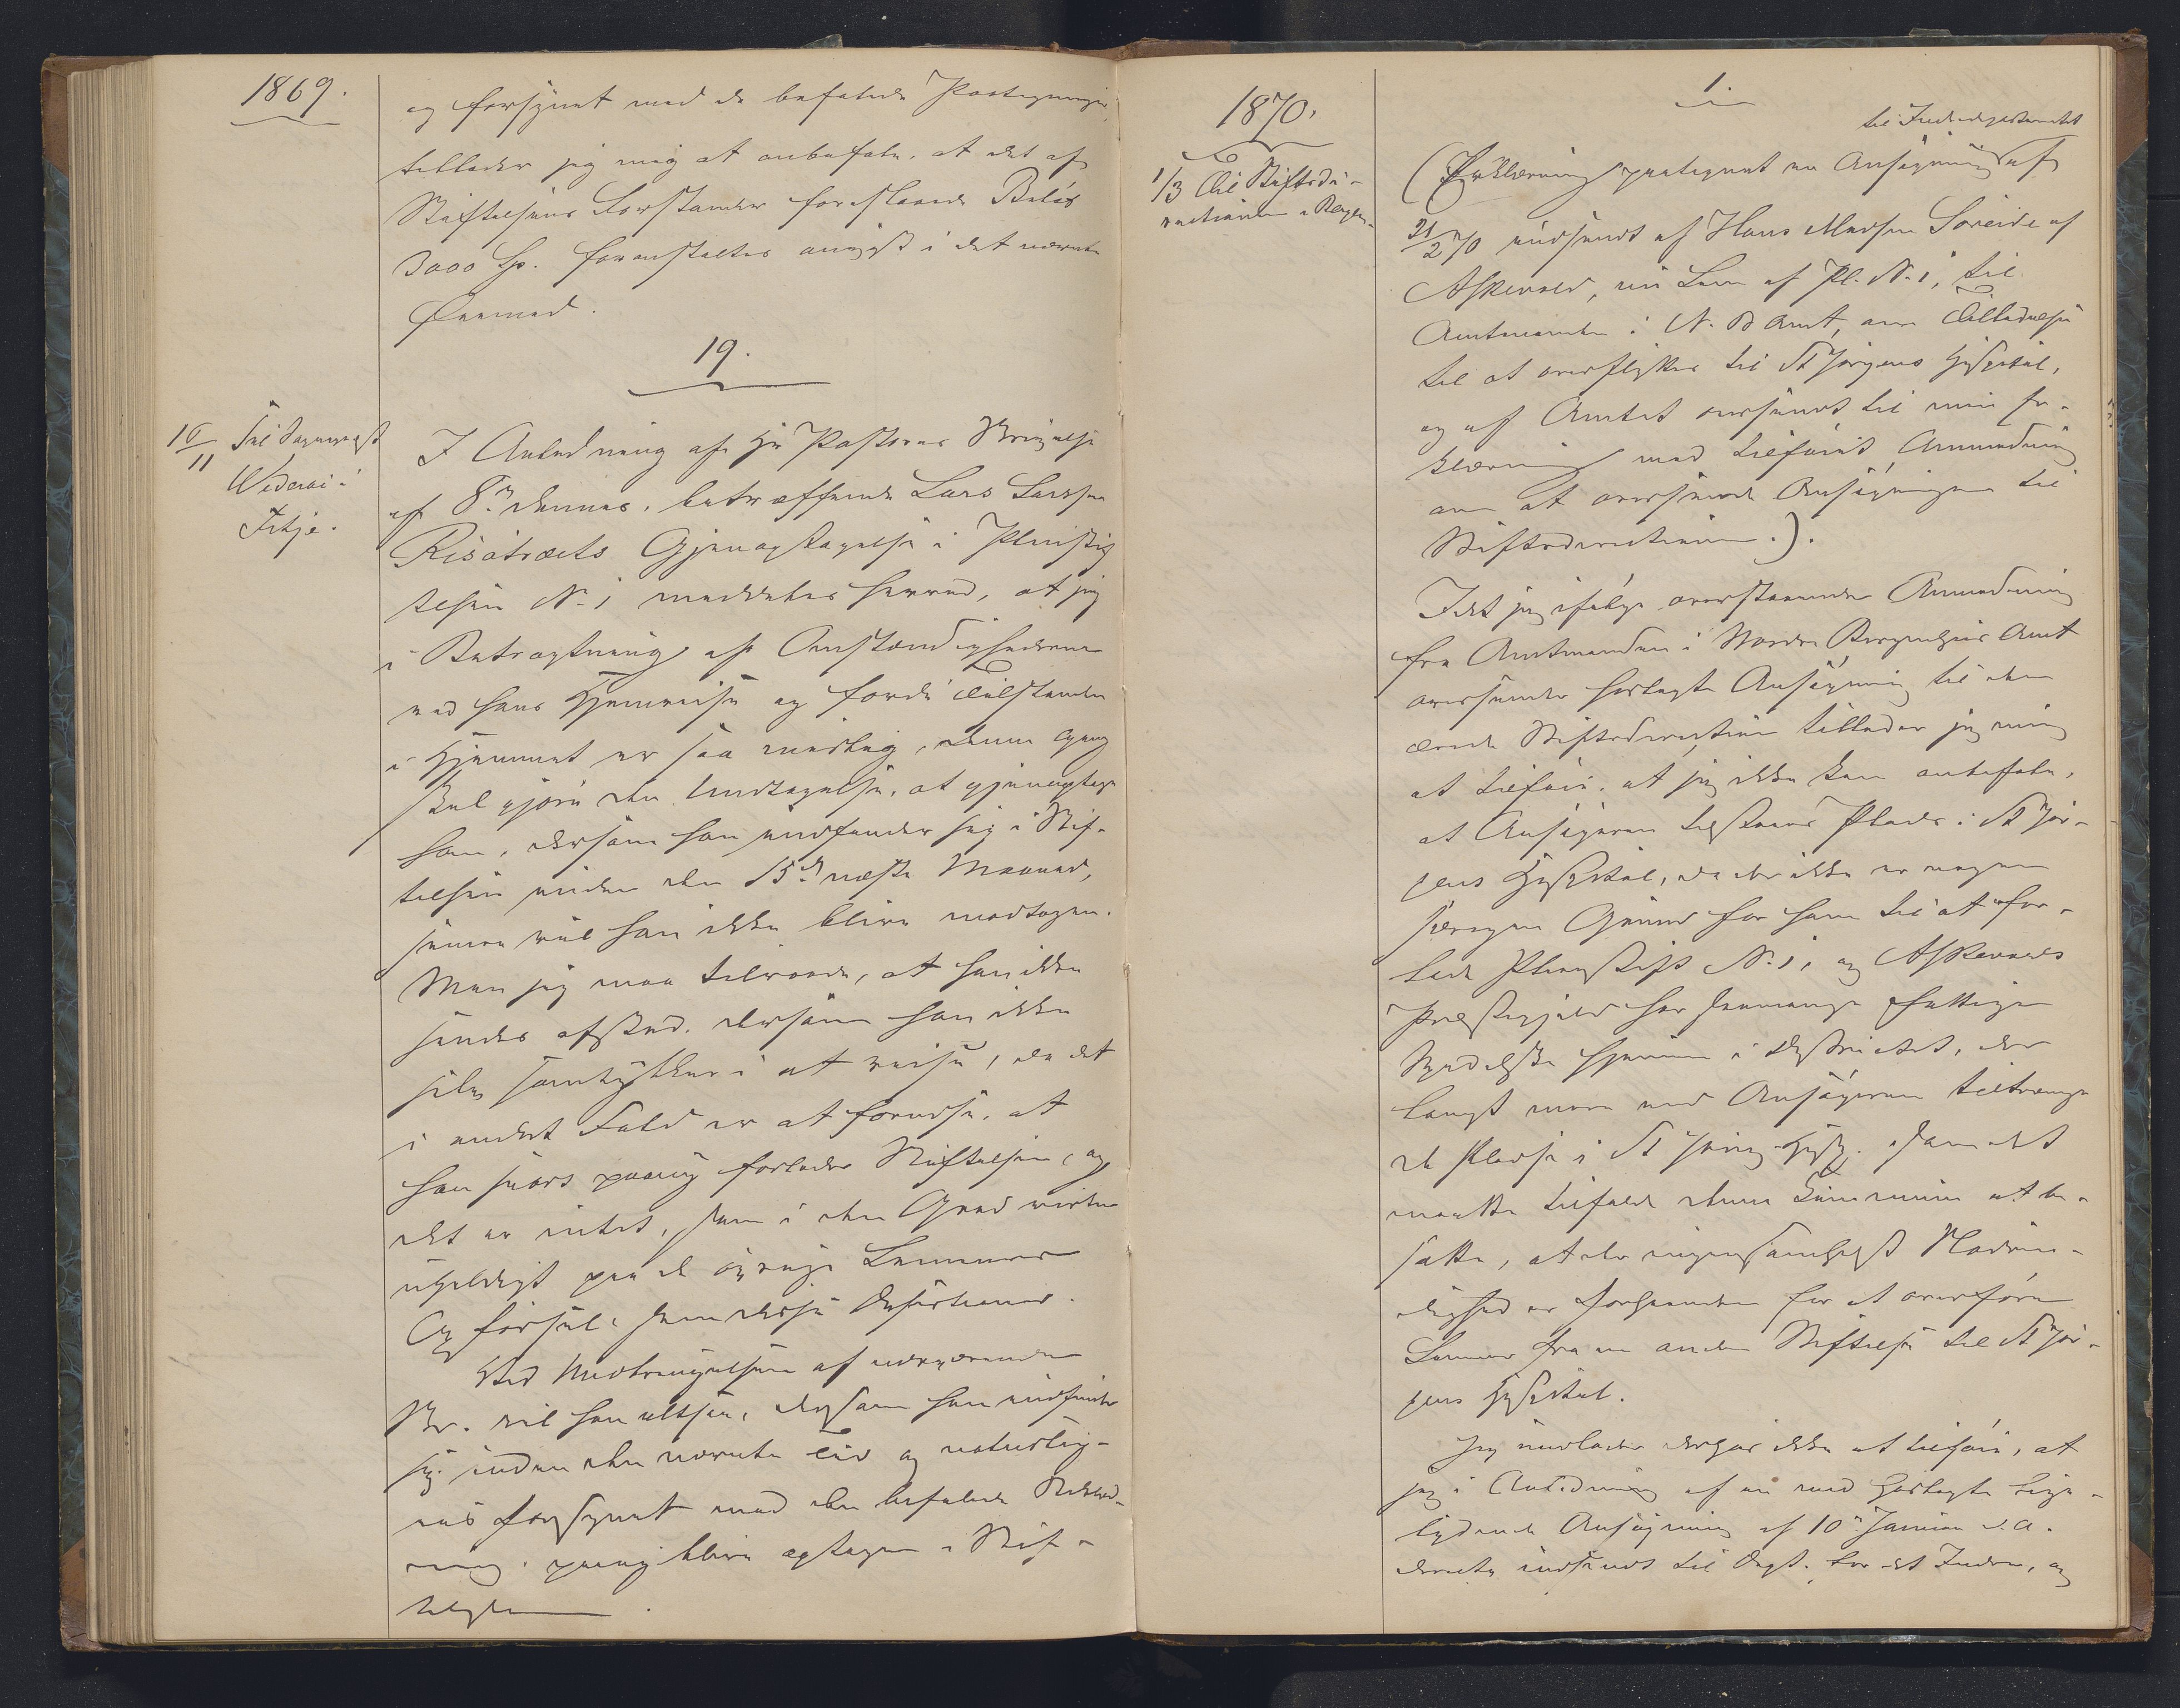 1869.
og forsynet med de befalede Paategninger,
tillader jeg mig at anbefale, at det af
Stiftelsens Forstander foreslaaede Beløb
3000 Sp. foranstaltes anvist i det nævnte
Øiemed.
19.
16/11 Til Sogneprest
Wedervi i
Fitje.
I Anledning af Hr Pastorens Skrivelse
af 8de dennes, betræffende Lars Larsen
Risøtræets Gjenoptagelse i Pleiestif-
telsen No 1 meddeles herved, at jeg
i Betragtning af Omstændighederne
ved hans Hjemreise og fordi Tilstanden
i Hjemmet er saa , denne Gang
skal gjøre den Undtagelse, at gjenoptage
ham, dersom han indfinder sig i Stif-
telsen inden den 15de næste Maaned,
senere vil han ikke blive modtagen.
Men jeg maa tilraade, at han ikke
sendes afsted, dersom han ikke
selv samtykker i at reise, da det
i andet Fald er at forudse, at
han snart paany forlader Stiftelsen, og
det er intet, som i den Grad virker
uheldigt paa de øvrige Lemmer
Ved Medbringelsen af nærværende
Br. vil han altsaa, dersom han indfinder
sig inden den nævnte Tid og naturlig-
vis forsynet med den befalede
paany blive optagen i Stif-
telsen.
1870.
1/3 Til Stiftsdi-
rectionen i Bergen.
1.
til Indredepartementet
(Erklæring paategnet en Ansøgning af
21/2 70 indsendt af Hans Madsen Søreide af
Askevold, nu Lem af Pl. No 1, til
Amtmanden i N. B Amt, om Tilladelse
til at overflyttes til St Jørgens Hospital,
og af Amtet oversendt til min Er-
klæring med tilføiet Anmodning
om at oversende Ansøgningen til
Stiftsdirectionen.).
Idet jeg ifølge ovenstaaende Anmodning
fra Amtmanden i Nordre Bergenhus Amt
oversender hoslagte Ansøgning til den
ærede Stiftsdirection tillader jeg mig
at tilføie, at jeg ikke kan anbefale,
at Ansøgeren tilstaaes Plads i St Jør-
gens Hospital, da der ikke er nogen
særegen Grund for ham til at for-
lade Pleiestift. No 1, og Askevolds
Præstegjeld har saamange fattige
Spedalske hjemme i Distriktet, der
langt mere end Ansøgeren tiltrænge
de Pladse i St Jørg. Hosp. som det
maatte tilfalde denne Commune at be-
sætte, at der ingensomhelst Nødven-
dighed er forhaanden for at overføre
Lemmer fra en anden Stiftelse til St Jør-
gens Hospital.
Jeg undlader derhos ikke at tilføie, at
jeg i Anledning af en med hoslagte lige-
lydende Ansøgning af 10de Januar d. A.
directe indsendt til Dept. for det Indre, og